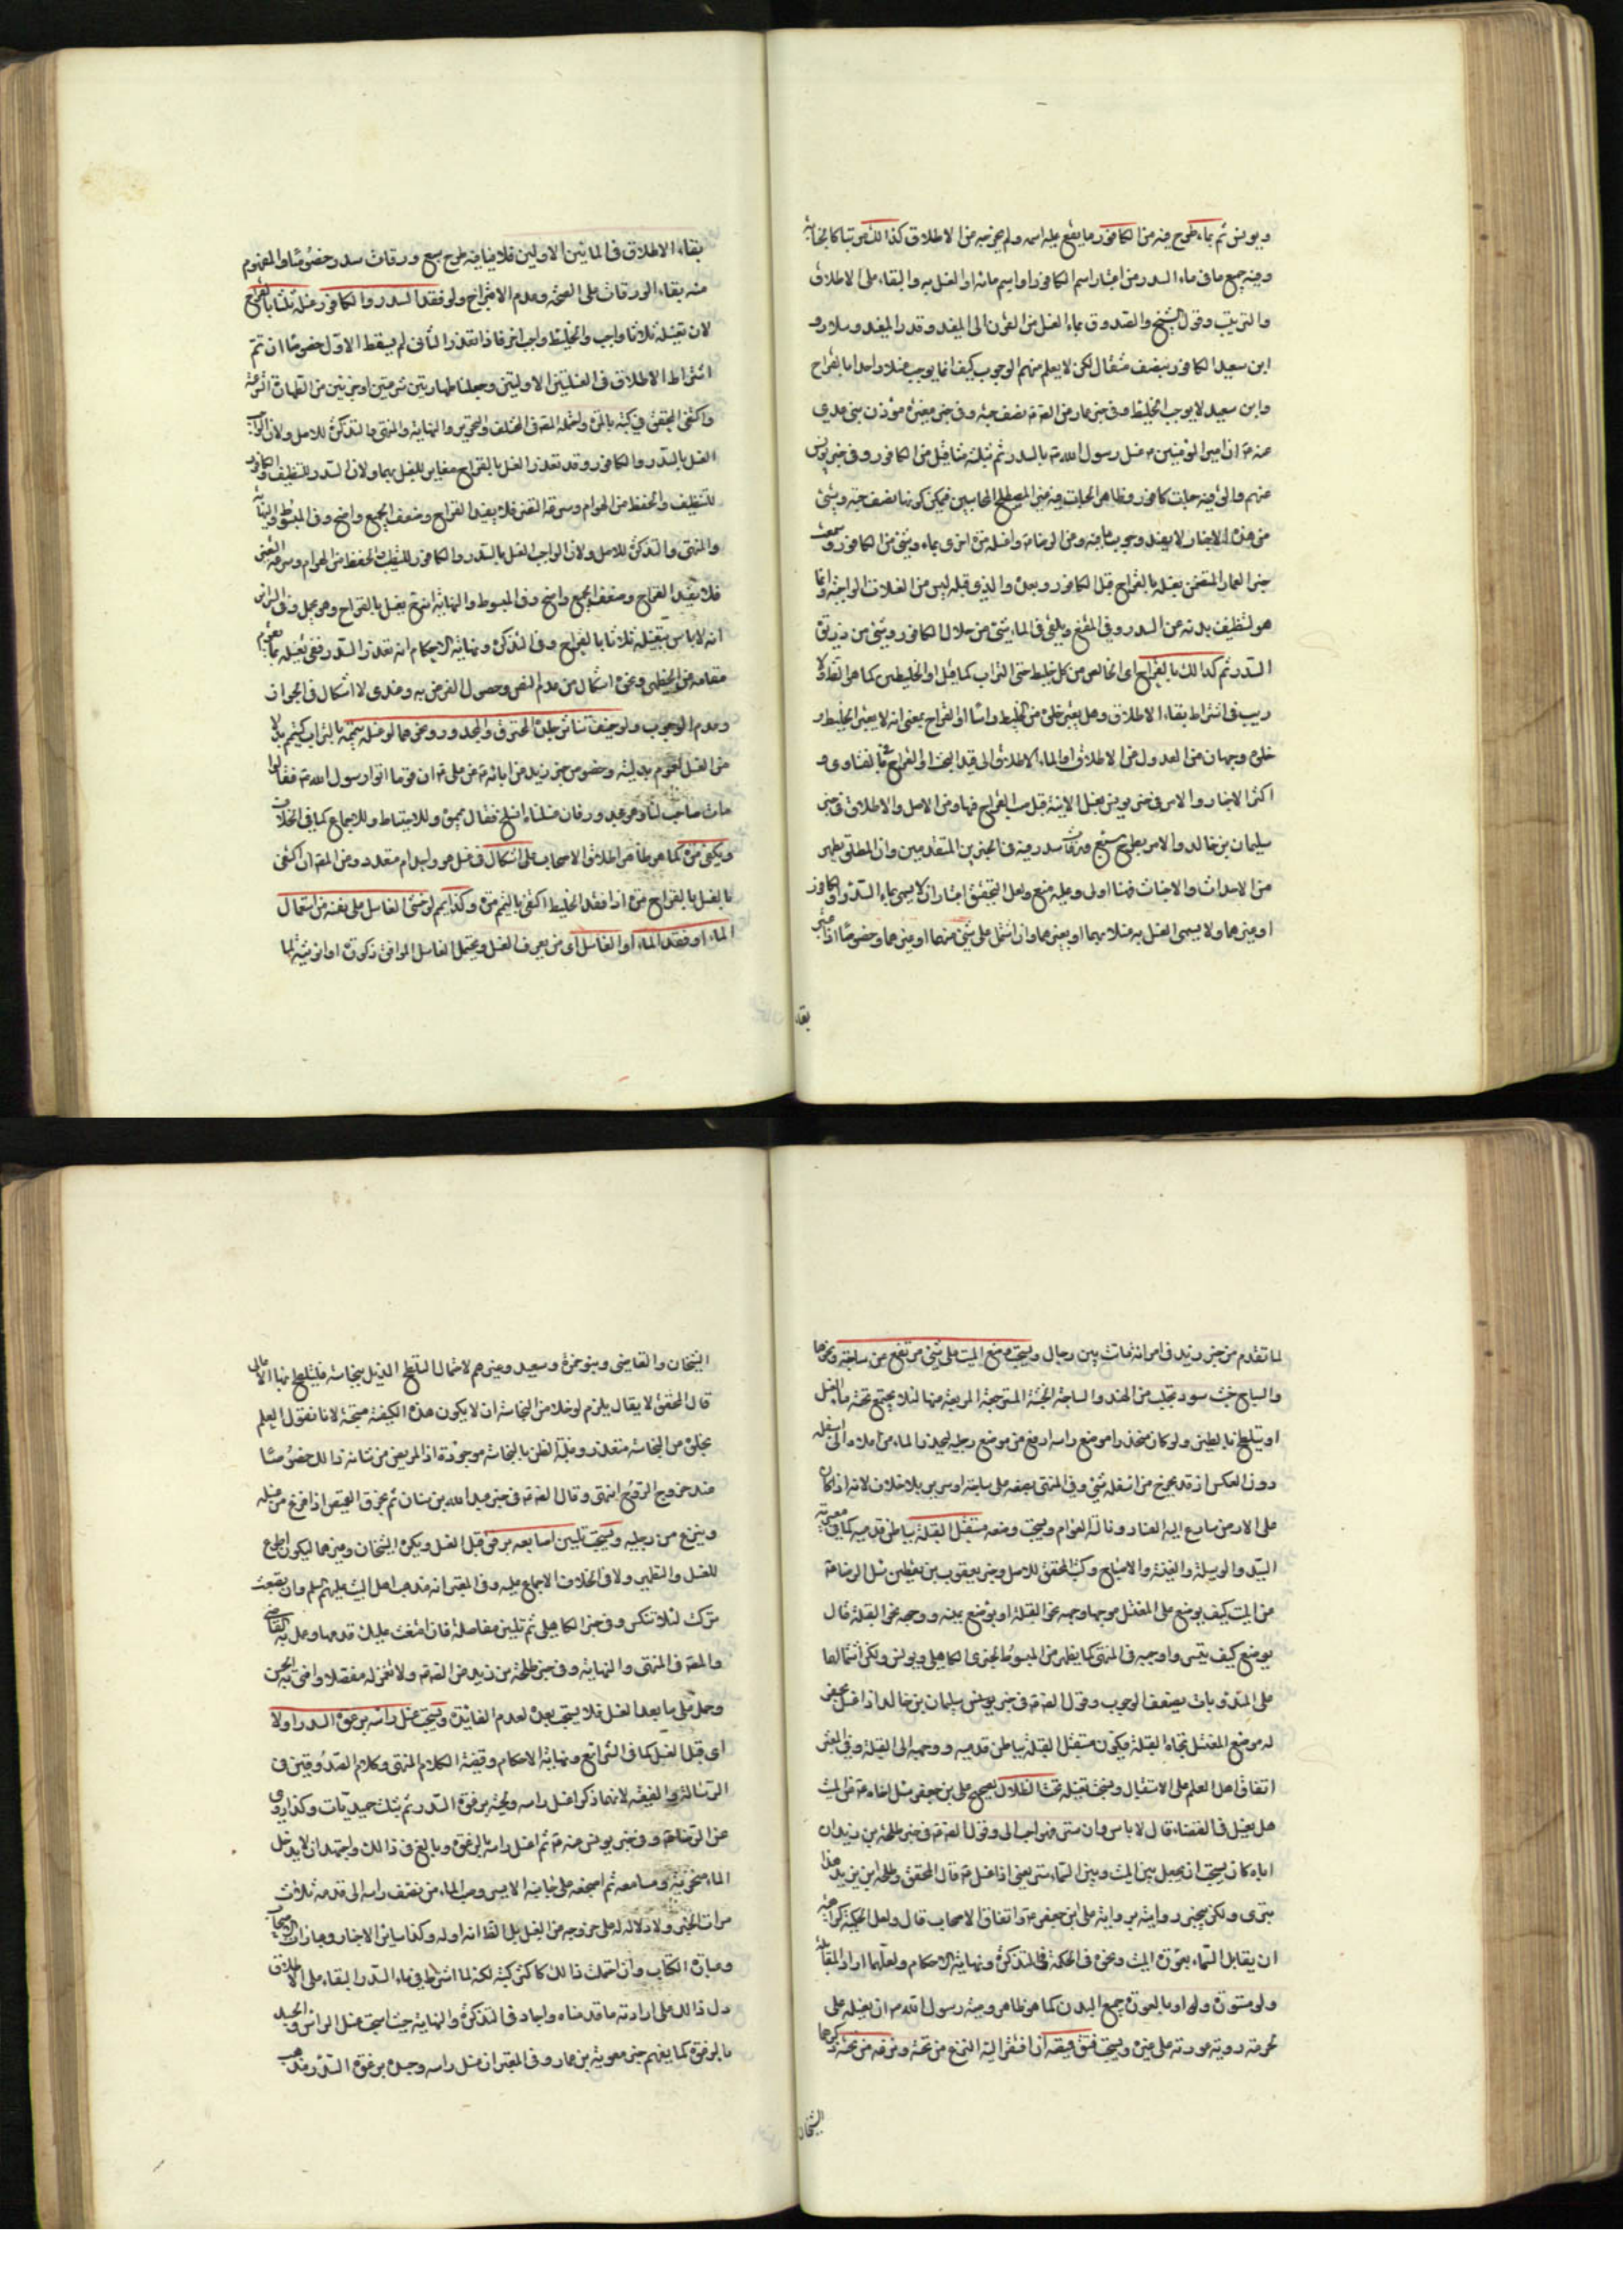 ويونس ثم بماء طرح فيه من الكافور ما يقع عليه اسمه ولم يخرجه من الاطلاق كذلك مرتبا كالجنابة
وفيه جميع ما في ماء السدر من اعتبار اسم الكافور او اسم مائه او الغسل به والبقاء على الاطلاق
والترتيب وقول الشيخ والصدوق بماء الغسل من الفرن الى المفيد وقدر المفيد وسلار و
ابن سعيد الكافور بنصف مثقال لكن لا يعلم منهم الوجوب كيف انما يوجب سلار واحدا بالقراح
وابن سعيد لا يوجب الخليط وفي خبر عمار من الصادق نصف حبة وفي خبر مغيرة مؤذن بني عدي
عنه ان امير المؤمنين غسل رسول الله بالسدر ثم بثلثة مثاقيل من الكافور وفي خبر يونس
عنهم والق فيه حبات كافور وظاهر الحبات فيه غير المصطلح للحاسبين فيمكن كونها نصف حبة وشئ
من هذه الاخبار لا يفيد وجوب ما فيه وعن الرضا واغسله مرة اخرى بماء وشئ من الكافور وسمعت
خبر عمار المتضمن بغسله بالقراح قبل الكافور وبعده والذي قبله ليس من الغسلات الواجبة وانما
هو لتنظيف بدنه من السدر وفي المقنع ويلقى في الماء شئ من جلال الكافور وشئ من ذريرة
السدر ثم كذلك بالقراح اى الخالص من كل خليط حتى التراب كما قيل او الخليطين كما هو الظاهر ولا
ريب في اشتراط بقاء الاطلاق وهل يعتبر خلوه من الخليط راسا او القراح بمعنى انه لا يعتبر الخليط و
خلوه وجهان من العدول من الاطلاق او الماء الاطلاق الى قيد البحت او القراح في الفتاوى و
اكثر الاخبار والامر في خبر يونس بغسل الانية قبل صب القراح فيها ومن الاصل والاطلاق في خبر
سليمان بن خالد والامر بطرح سبع ورقات سدر فيه في الخبرين المتقدمين وان المطلق يطهر
من الاحداث والاخباث فهنا اولى وعليه منع ولعل التحقيق اعتبار ان لا يسمى بماء السدر او الكافور
او غيرهما ولا يسمى الغسل به غسلا بهما او بغيرهما وان اشتمل على شئ منهما او غيرهما وخصوصا اذا اعتبر
بقاء
بقاء الاطلاق في المائين الاولين فلا ينافيه طرح سبع ورقات سدر خصوصا والمفهوم
منه بقاء الورقات على الصحة وعدم الامتزاج ولو فقد السدر والكافور غسله ثلثا بالقراح
لان تغسيله ثلاثا واجب والخليط واجب اخر فاذا تعذر الثاني لم يسقط الاول خصوصا ان تم
اشتراط الاطلاق في الغسلتين الاوليتين وجعلنا طهارتين شرعيتين او جزئين من الطهارة الشرعية
واكتفى المحقق في كتبه بالمرة واحتمله المصنف في المختلف والتحرير والنهاية والمنتهى والتذكرة للاصل ولان الواجب
الغسل بالسدر والكافور وقد تعذر الغسل بالقراح مغاير للغسل بهما ولان السدر للتنظيف والكافور
للتنظيف والحفظ من الهوام وسرعة التغير فلا يفيد القراح وضعف الجميع واضح وفي المبسوط والنهاية
والمنتهى والتذكرة للاصل ولان الواجب الغسل بالسدر والكافور للتنظيف والحفظ من الهوام وسرعة التغير
فلا يفيد القراح وضعف الجميع واضح وفي المبسوط والنهاية انه يغسل بالقراح وهو مجمل وفي السرائر
انه لا باس بتغسله ثلاثا بالقراح وفي التذكرة ونهاية الاحكام انه تعذر السدر ففي تغسيله بما يقوم
مقامه من الخطمي ونحوه اشكال من عدم النص وحصول الغرض به وعندي لا اشكال في الجواز
وعدم الوجوب ولو خيف تناثر جلد المحترق والمجدور ونحوهما لو غسله تيممه بالتراب كيتمم بدلا
من الغسل لعموم بدليته وخصوص خبر زيد عن ابائه عن علي ان قوما اتوا رسول الله فقالوا
مات صاحب لنا وهو مجدور فان غسلناه انسلخ فقال يمموه وللاحتياط وللاجماع كما في الخلاف
ويكفي مرة كما هو ظاهر اطلاق الاصحاب على اشكال في غسل هو واحد ام متعدد ومن المصنف ان اكتفى
بالغسل بالقراح مرة اذا فقد الخليط اكتفى بالتيمم مرة وكذا يمم لو خشى الغاسل على نفسه من استعمال
الماء او فقد الماء او الغاسل اى من يعرف الغسل ويحتمل الغاسل الموافق ذكورة او انوثية لما
لما تقدم من خبر زيد في امراة ماتت بين رجال ويستحب وضع الميت على شئ مرتفع من ساجة ونحوها
والساج خشب سود تجلب من الهند والساجة الخشبة المشرجعة المربعة منها لئلا يجتمع تحته ماء الغسل
او يتلطخ بالطين ولو كان منحدرا موضع راسه ارفع من موضع رجليه لينحدر الماء من اعلاه الى اسفله
دون العكس اذ قد يخرج من اسفله شئ وفي المنتهى يضعه على ساجة او سرير بلا خلاف لانه اذا كان
على الارض سارع اليه الفساد ونالته الهوام ويستحب وضعه مستقبل القبلة بباطن قدميه كما في مصرية
السيد والوسيلة والغنية والاصباح وكتب المحقق للاصل وخبر يعقوب بن يقطين سئل الرضا
عن الميت كيف يوضع على المغتسل موجها وجهه نحو القبلة او يوضع يمينه ووجهه نحو القبلة قال
يوضع كيف تيسر واوجبه في المنتهى كما يظهر من المبسوط لخبري الكاهلي ويونس ولكن اشتمالهما
على المندوبات يضعف الوجوب وقول الصادق في خبر يونس سليمان بن خالد اذا غسل يحفر
له موضع المغتسل تجاه القبلة فيكون مستقبل القبلة بباطن قدميه ووجهه الى القبلة وفي المعتبر
اتفاق اهل العلم على الاستقبال ويستحب تغسيله تحت الظلال لصحيح علي بن جعفر سئل اخاه عن الميت
هل يغسل في الفضاء قال لا باس وان ستر فهو احب الي وقول الصادق في خبر طلحة بن زيد ان
اباه كان يستحب ان يجعل بين الميت وبين السماء ستر يعني اذا غسل قال المحقق وطلحة ابن زيد هذا
بتري ولكن ينجبر روايته برواية علي ابن جعفر واتفاق الاصحاب قال ولعل الحكمة كراهية
ان يقابل السماء بعورة الميت ونحوه في الحكمة في التذكرة ونهاية الاحكام ولعلهما ارادا المقابلة
ولو مستورة وله او بالعورة جميع البدن كما هو ظاهر وصية رسول الله ان يغسله علي
لحرمة روية عورته على غيره ويستحب فتق قميصه ان افتقر اليه النزع من تحته ونزعه من تحته ذكرهما
الشيخان
الشيخان والقاضي وبنو حمزة وسعيد وغيرهم لاحتمال التلطخ الذيل بنجاسة فيتلطخ بها الاعالي
قال المحقق لا يقال يلزم لو خلا من النجاسة ان لا يكون هذه الكيفية مستحبة لانا نقول العلم
بخلوه من النجاسة متعذر وغلبة الظن بالنجاسة موجودة اذ المريض من شانه ذلك خصوصا
عند خروج الروح انتهى وقال الصادق في خبر عبد الله بن سنان ثم يخرق القميص اذا فرغ من غسله
وينزع من رجليه ويستحب تليين اصابعه برفق قبل الغسل ويكره الشيخان وغيرهما ليكون اطوع
للغسل والتطهير ولا في الخلاف الاجماع عليه وفي المعتبر انه مذهب اهل البيت عليهم السلم وان تصعبت
تركت لئلا تنكسر وفي خبر الكاهلي ثم تلين مفاصله فان امتنعت عليك فدعها وعمل به القاضي
والمصنف في المنتهى والنهاية وفي خبر طلحة بن زيد عن الصادق ولا تغمز له مفصلا وافتى به الحسن
وحمل على ما بعد الغسل فلا يستحب بعده لعدم الفايدة ويستحب غسل راسه برغوة السدر اولا
اى قبل الغسل كما في الشرائع ونهاية الاحكام وقضية الكلام المنتهى وكلام الصدوقين في
الرسالة والفقيه لانهما ذكرا غسل راسه ولحيته برغوة السدر ثم بثلث حميديات وكذا روي
عن الرضا وفي خبر يونس عنهم ثم اغسل راسه بالرغوة وبالغ في ذلك واجتهد ان لا يدخل
الماء منخريه ومسامعه ثم اضجعه على جانبه الايسر وصب الماء من نصف راسه الى قدمه ثلاث
مرات الخبر ولا دلالة له على خروجه من الغسل بل الظاهر انه اوله وكذا ساير الاخبار وعبارات الاصحاب
وعبارة الكتاب وان احتملت ذلك كاكثر كتبه لكنه لما اشترط في ماء السدر البقاء على الاطلاق
دل ذلك على ارادته ما قدمناه واجاد في التذكرة والنهاية حيث استحب غسل الراس والجسد
بالرغوة كما يفهم خبر معوية بن عمار وفي المعتبر ان غسل راسه وجسده برغوة السدر مذهب